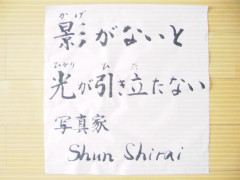 かげ
影がないと
ひかり ひ た
光が引き立たない
写真家
Shun Shirai